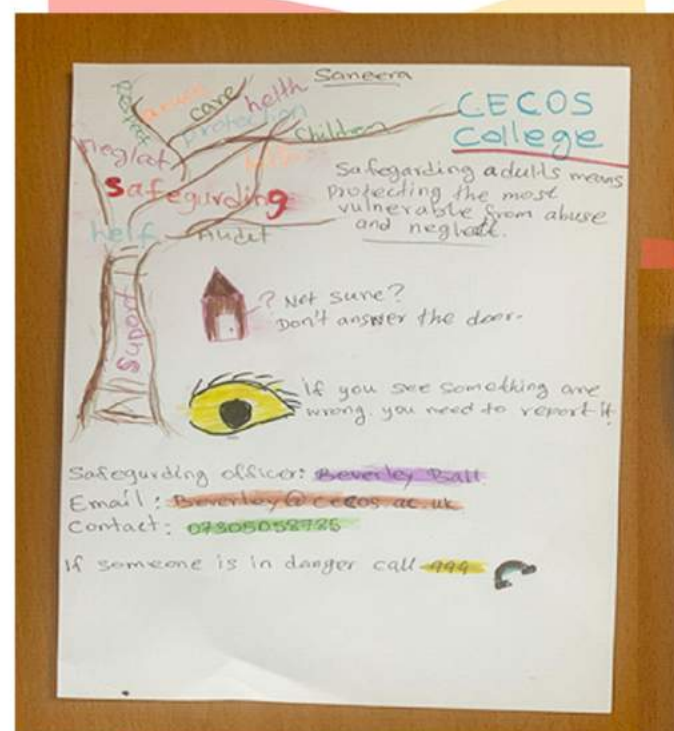 Saneera
CECOS
College
protect
abuse
care
helth
protection
Children
neglat
help
Safegurding
help
Audet
suport
Safegarding adults means
protecting the most
vulnerable from abuse
and neglett.
? Not sure?
Don't answer the door.
If you see something are
wrong. you need to report it
Safegurding officer: Beverley Ball
Email: Beverley@cecos.ac.uk
Contact:
If someone is in danger call 999